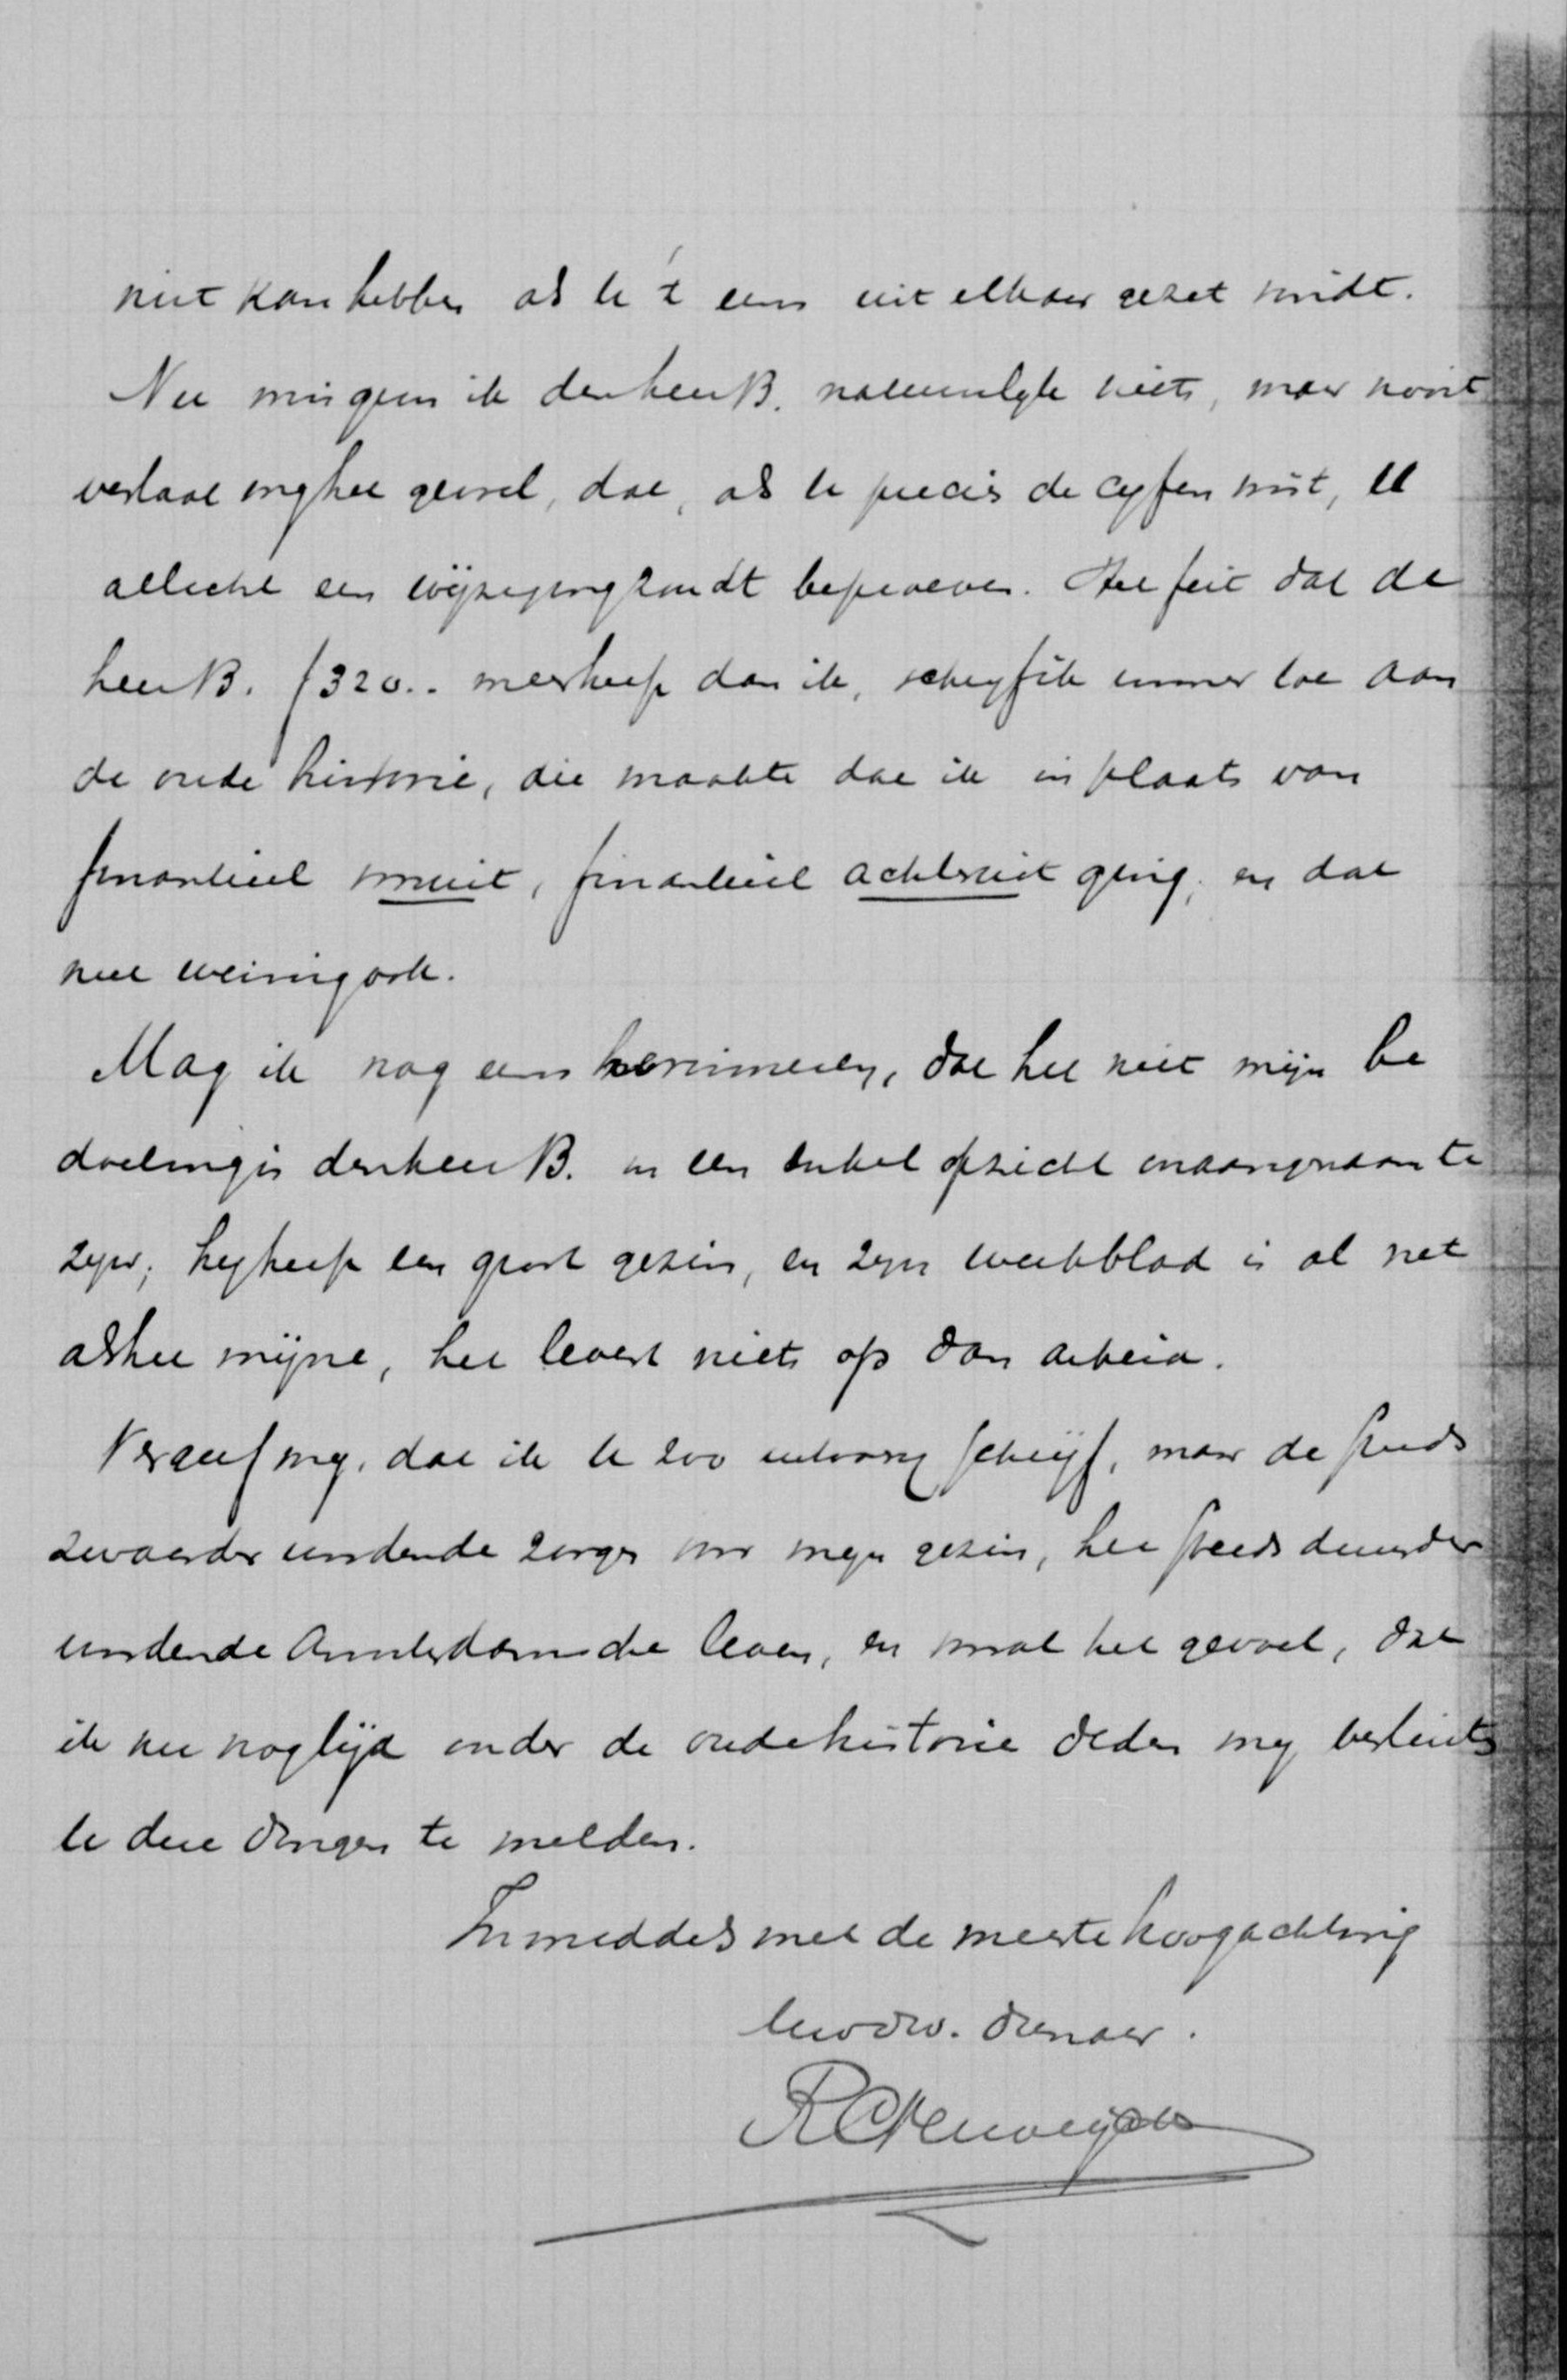 niet kan hebben als U 't eens uit elkaar gezet wordt.
Nu misgun ik den heer B. natuurlyk niets, maar nooit
verlaat my het gevoel, dat, als U precies de cyfers wist, U
allicht een wyziging zoudt beproeven. Het feit dat de
heer B. f 320.. meer heeft dan ik, schryf ik immer toe aan
de oude historie, die maakte dat ik in plaats van
financieel vooruit, financieel achteruit ging, en dat
niet weinig ook.
Mag ik nog eens herinneren, dat het niet mijn be
doeling is den heer B. in een enkel opzicht onaangenaam te
zyn; hy heeft een groot gezin, en zyn weekblad is al net
als het mijne, het levert niets op dan arbeid.
Vergeef my, dat ik U zoo schrijf, maar de steeds
zwaarder wordende zorgen voor myn gezin, het steeds duurder
wordende Amsterdamsche leven, en vooral het gevoel, dat
ik nu nog lijd onder de oude historie deden my besluiten
U deze dingen te melden.
Inmiddels met de meeste hoogachting
Uw dw. dienaar.